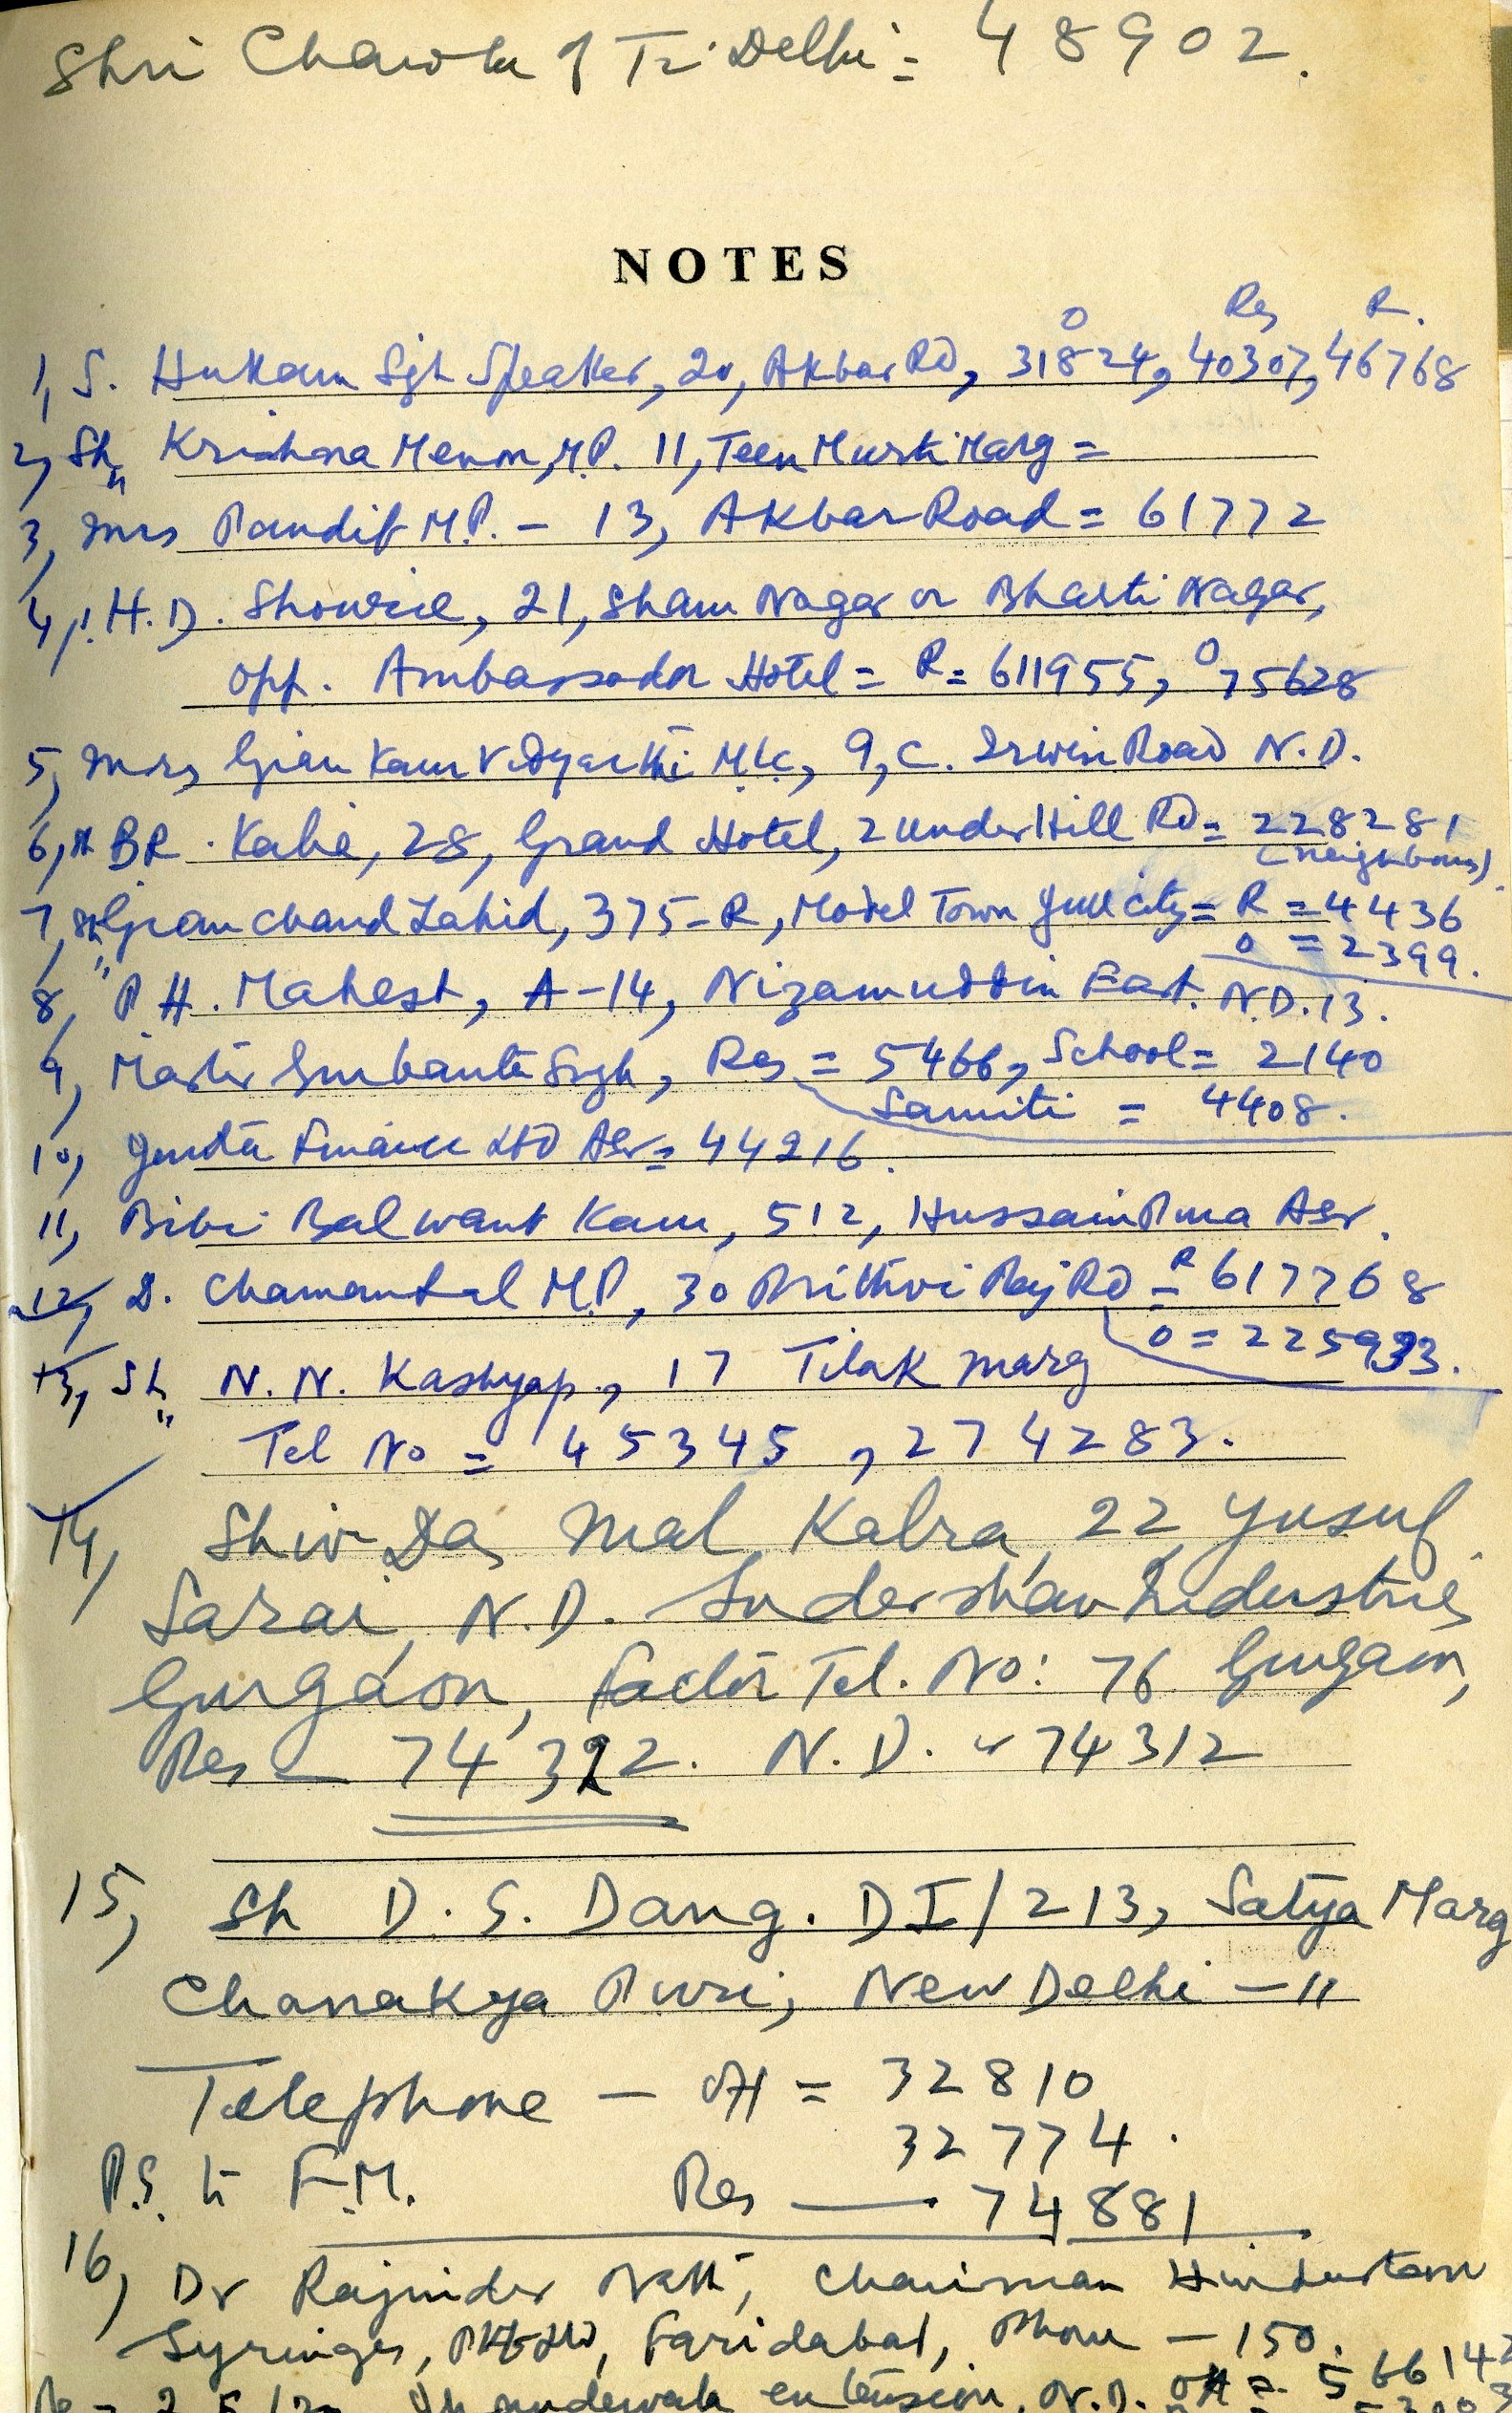 Shri Chawla of Tr. Delhi = 48902.
NOTES
O Res R.
1, S. Hukam Sgh Speaker, 20, Akbar Rd, 31824, 40307, 46768
2, Sh. Krishna Menon, M.P. 11, Teen Murti Marg =
3, Mrs Pandit M.P. - 13, Akbar Road = 61772
4, H.D. Showrie, 21, Sham Nagar or Bharti Nagar,
opp. Ambassador Hotel = R = 611955, O 75628
5, Mrs Gian Kaur Vidyarthi M.L.C, 9, C. Irwin Road N.D.
6, BR. Kalia, 28, Grand Hotel, 2 under Hill Rd = 228281
(neighbours)
7, Sh Gian Chand Zahid, 375-R, Model Town Jull City = R = 4436
O = 2399.
8, " P.H. Mahest, A-14, Nizamuddin East. N.D. 13.
9, Master Gurbanta Singh, Res = 5466, School = 2140
Samiti = 4408.
10, Janta Finance Ltd Asr = 44216.
11, Bibi Balwant Kaur, 512, HussainPura Asr.
12, D. Chamanlal M.P, 30 Prithvi Raj Rd = R 617768
O = 225933.
13, Sh N.N. Kashyap, 17 Tilak Marg
Tel No = 45345, 274283.
14, Shiv Das Mal Kalra, 22 Yusuf
Sarai, N.D. Sudershan Industries
Gurgaon, Factor Tel. No: 76 Gurgaon,
Res - 74322. N.D. 74312
15, Sh D.S. Dang. DI/213, Satya Marg
Chanakya Puri, New Delhi - 11
Telephone - Off = 32810
32774.
P.S. to F.M. Res — 74881
16, Dr Rajinder Nath, Chairman Hindustan
Syringes, Faridabad, Phone - 150.
extension, N.D. Off = 566142